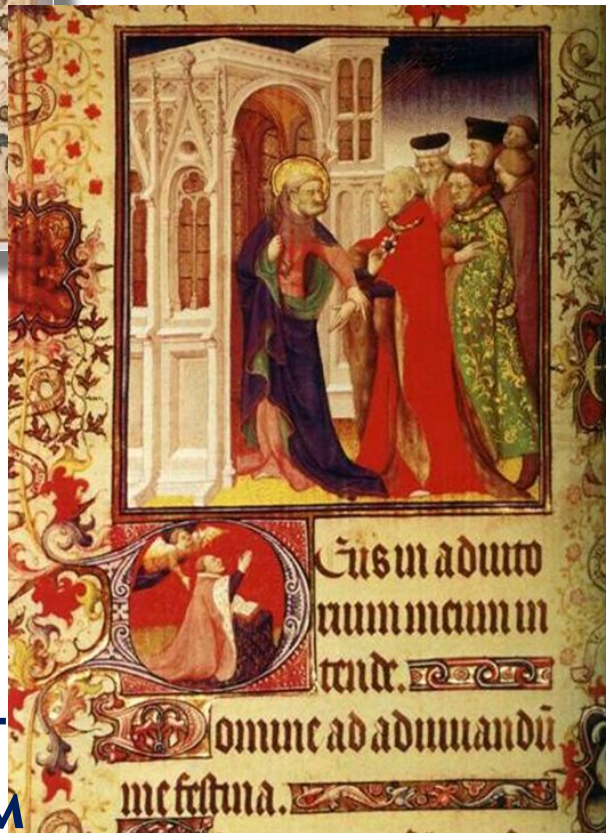 Deus in adiuto
rium meum in
tende.
Domine ad adiuuandū
me festina.
M